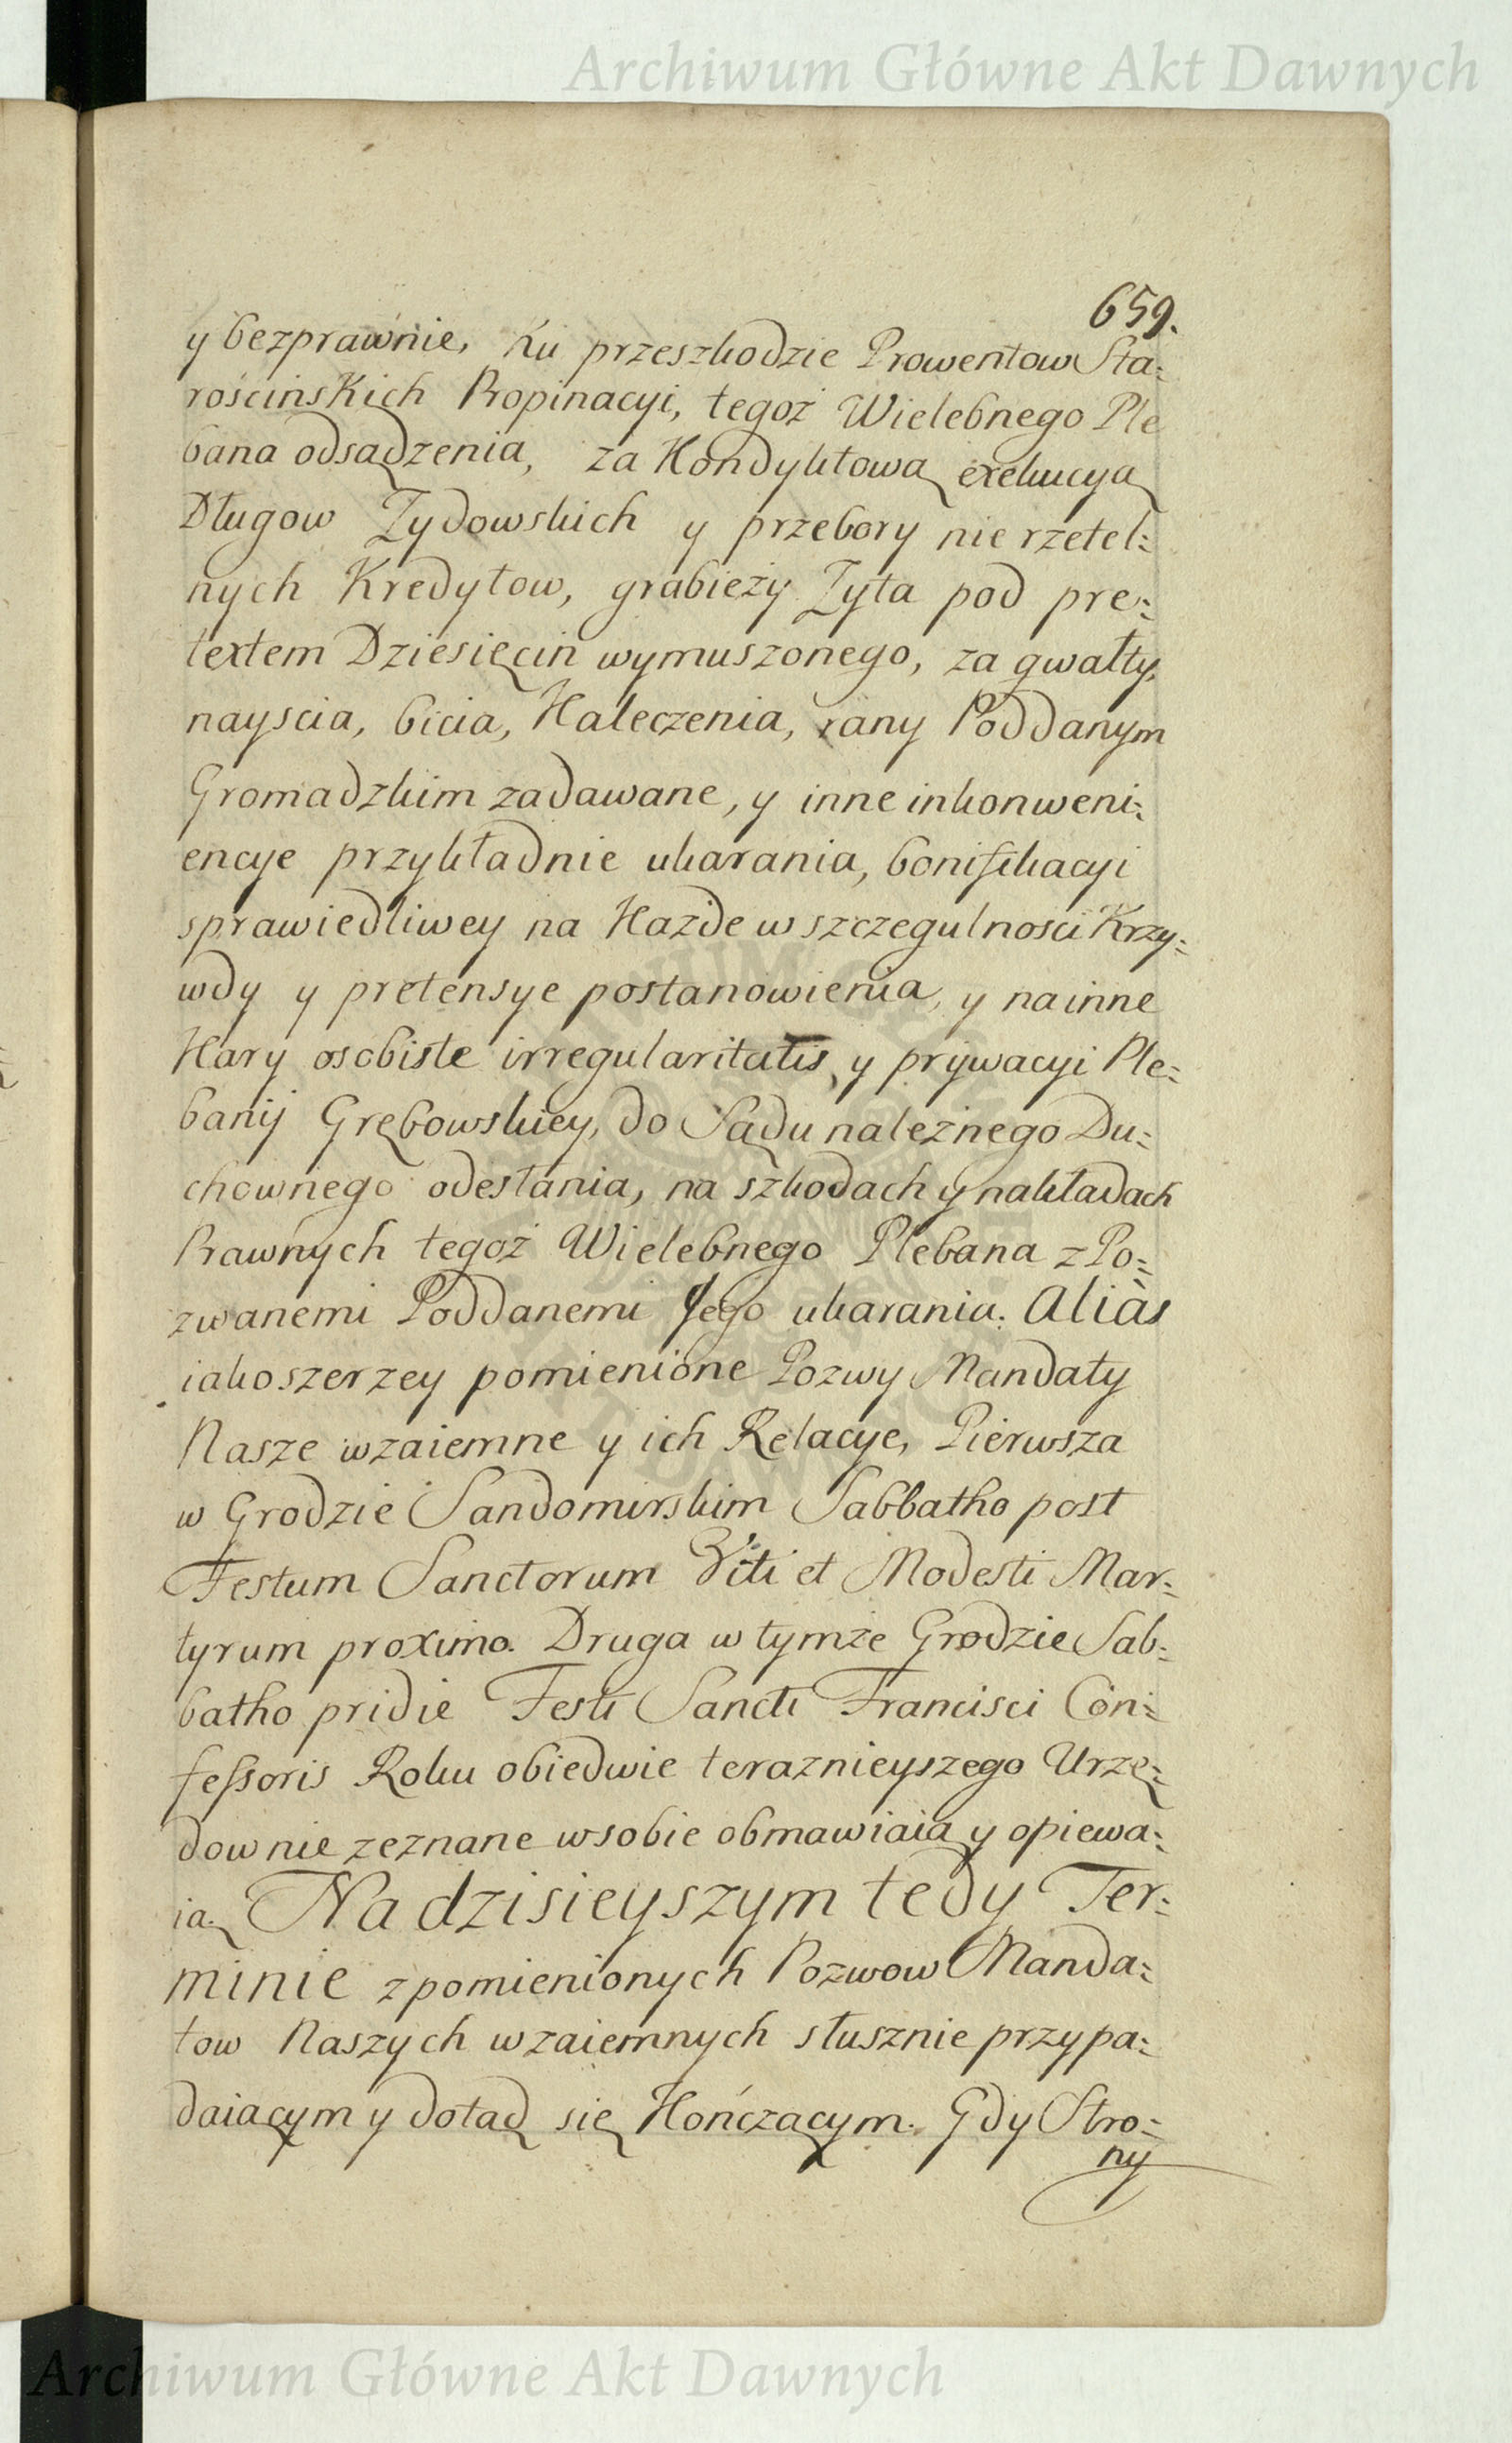 Archiwum Główne Akt Dawnych
659.
y bezprawnie, ku przeszkodzie Prowentow Sta:
rościnskich Propinacyi, tegoż Wielebnego Ple
bana odsądzenia, za Kondyktową exekucyą
Długow Zydowskich y przebory nie rzetel:
nych Kredytow, grabieży Zyta pod pre:
textem Dziesięcin wymuszonego, za gwałty,
nayscia, bicia, Kaleczenia, rany Poddanym
Gromadzkim zadawane, y inne inkonweni:
encye przykładnie ukarania, bonifikacyi
sprawiedliwey na Kazde w szczegulnosci Krzy:
wdy y pretensye postanowienia, y na inne
Kary osobiste irregularitatis, y prywacyi Ple:
banij Grębowskiey, do Sądu należnego Du:
chownego odesłania, na szkodach y nakładach
Prawnych tegoż Wielebnego Plebana z Po:
zwanemi Poddanemi Jego ukarania. Aliàs
iako szerzey pomienione Pozwy Mandaty
Nasze wzaiemne y ich Relacye, Pierwsza
w Grodzie Sandomirskim Sabbatho post
Festum Sanctorum Viti et Modesti Mar:
tyrum proximo. Druga w tymże Grodzie Sab:
batho pridie Festi Sancti Francisci Con:
fessoris Roku obiedwie teraznieyszego Urzę:
downie zeznane w sobie obmawiaią y opiewa:
ią. Na dzisieyszym tedy Ter:
minie z pomienionych Pozwow Manda:
tow Naszych wzaiemnych słusznie przypa:
daiącym y dotąd się Kończącym. Gdy Stro:
ny
Archiwum Główne Akt Dawnych